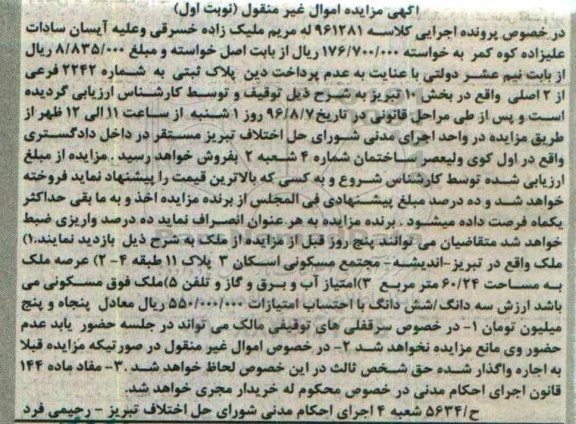 آگهی مزایده اموال غیر منقول (نوبت اول)
در خصوص پرونده اجرایی کلاسه ۹۶۱۲۸۱ له مریم ملیک زاده خسرقی وعلیه آیسان سادات
علیزاده کوه کمر به خواسته ۱۷۶/۷۰۰/۰۰۰ ریال از بابت اصل خواسته و مبلغ ۸/۸۳۵/۰۰۰ ریال
از بابت نیم عشر دولتی با عنایت به عدم پرداخت دین پلاک ثبتی به شماره ۲۲۴۲ فرعی
از ۲ اصلی واقع در بخش ۱۰ تبریز به شرح ذیل توقیف و توسط کارشناس ارزیابی گردیده
است و پس از طی مراحل قانونی در تاریخ ۹۶/۸/۷ روز ۱ شنبه از ساعت ۱۱ الی ۱۲ ظهر از
طریق مزایده در واحد اجرای مدنی شورای حل اختلاف تبریز مستقر در داخل دادگستری
واقع در اول کوی ولیعصر ساختمان شماره ۴ شعبه ۲ بفروش خواهد رسید .مزایده از مبلغ
ارزیابی شده توسط کارشناس شروع و به کسی که بالاترین قیمت را پیشنهاد نماید فروخته
خواهد شد و ده درصد مبلغ پیشنهادی فی المجلس از برنده مزایده اخذ و به ما بقی حداکثر
یکماه فرصت داده میشود . برنده مزایده به هر عنوان انصراف نماید ده درصد واریزی ضبط
خواهد شد متقاضیان می توانند پنج روز قبل از مزایده از ملک به شرح ذیل بازدید نمایند.۱)
ملک واقع در تبریز-اندیشه- مجتمع مسکونی اسکان ۳ پلاک ۱۱ طبقه ۴- ۲) عرصه ملک
به مساحت ۶۰/۲۴ متر مربع ۳)امتیاز آب و برق و گاز و تلفن ۵)ملک فوق مسکونی می
باشد ارزش سه دانگ /شش دانگ با احتساب امتیازات ۵۵۰/۰۰۰/۰۰۰ ریال معادل پنجاه و پنج
میلیون تومان ۱- در خصوص سرقفلی های توقیفی مالک می تواند در جلسه حضور یابد عدم
حضور وی مانع مزایده نخواهد شد ۲- در خصوص اموال غیر منقول در صورتیکه مزایده قبلا
به اجاره واگذار شده حق شخص ثالث در این خصوص لحاظ خواهد شد .۳- مفاد ماده ۱۴۴
قانون اجرای احکام مدنی در خصوص محکوم له خریدار مجری خواهد شد.
ح/۵۶۳۴ شعبه ۴ اجرای احکام مدنی شورای حل اختلاف تبریز - رحیمی فرد